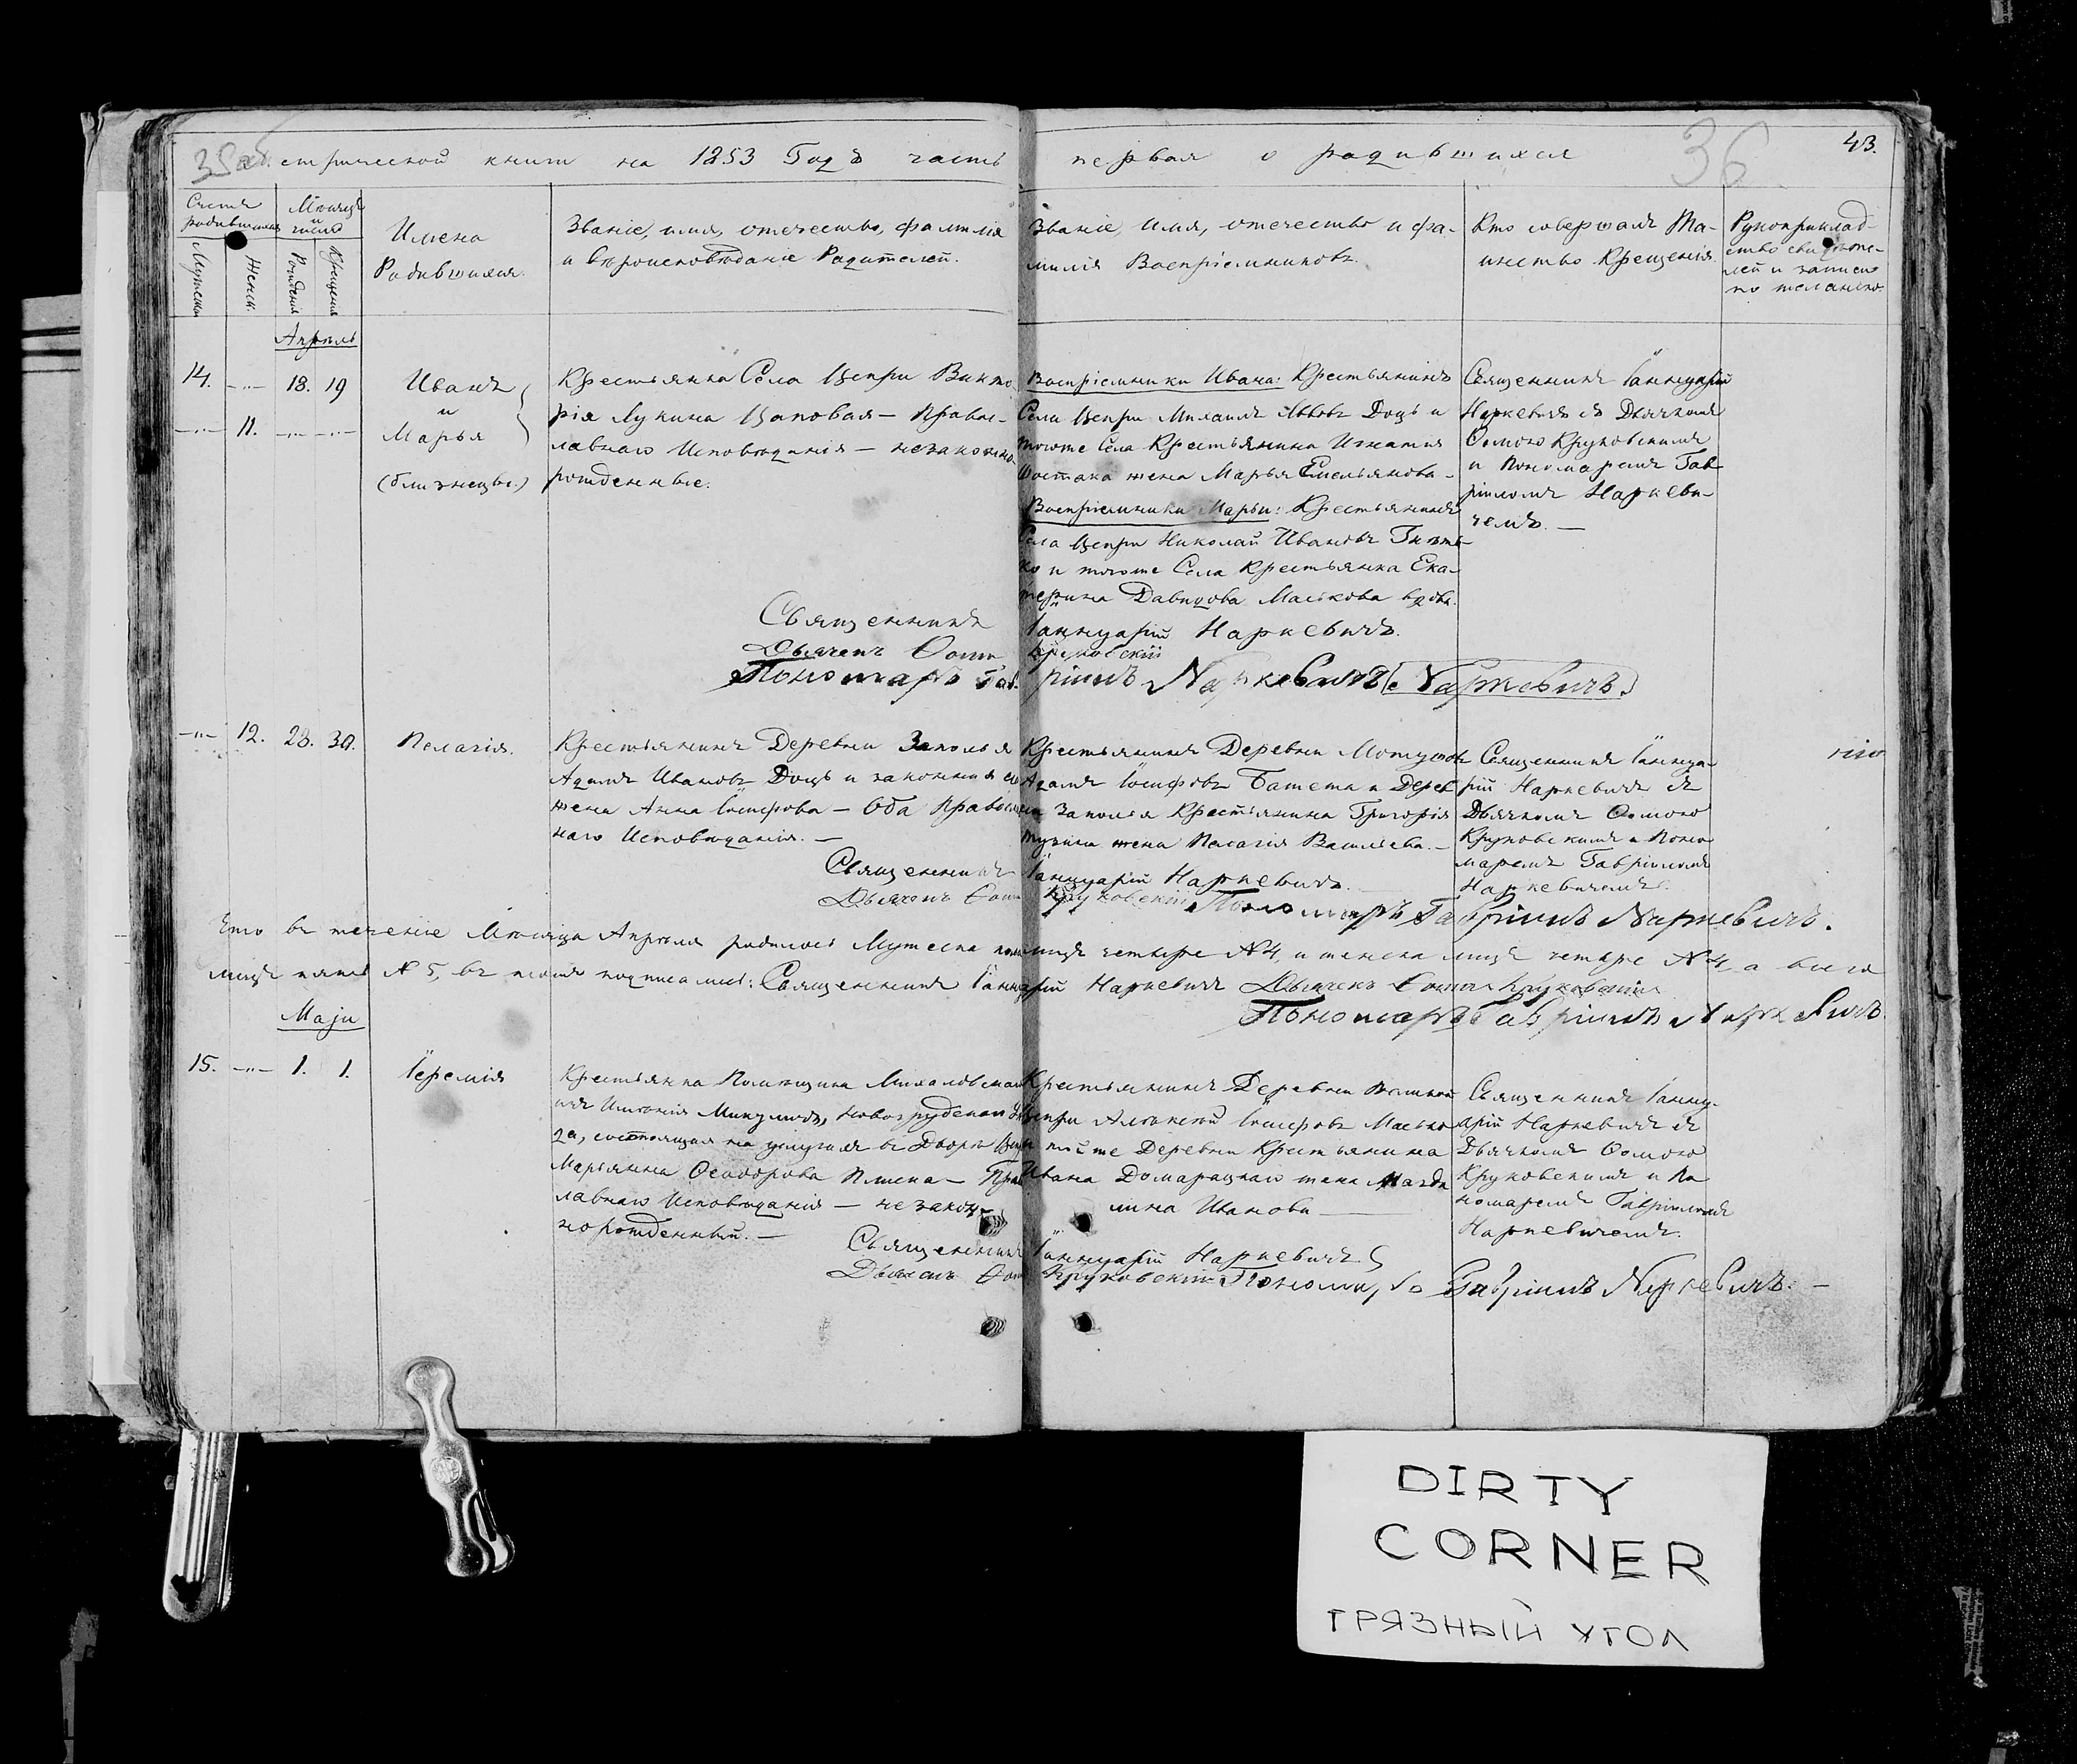 35об. етрической книги на 1853 Годъ часть первая о родившихся 36 43.
Счетъ родившихся
Мужеска
Женск.
Мѣсяцъ и число
Рожденія
Крещенія
Имена
Родившихся.
Званіе, имя, отечество, фамилія
и вѣроисповѣданіе Родителей.
Званіе, имя, отечество и фа-
милія Воспріемниковъ.
Кто совершалъ Та-
инство Крещенія.
Рукоприклад-
ство свидѣте-
лей и записи
по желанію.
Апрѣль
14. -„- 18. 19
-„- 11. -„- -„-
Иванъ
и
Марья
(близнецы.)
Крестьянка Села Цепри Викто
рія Лукина Цаповая — Правос-
лавнаго Исповѣданія — незаконно
рожденные.
Воспріемники Ивана: Крестьянинъ
Села Цепри Михаилъ Львовъ Доцъ и
тогоже Села Крестьянина Игнатія
Шостака жена Марья Емельянова —
Воспріемники Марьи: Крестьянинъ
Села Цепри Николай Ивановъ
ко и тогоже Села Крестьянка Ека-
терина Давидова Маськова вдова.
Священникъ Іаннуарій
Наркевичъ съ Дьячкомъ
Ѳомою Круковскимъ
и Пономаремъ Гав-
ріиломъ Наркеви-
чемъ. —
Священникъ Іаннуарій Наркевичъ.
Дьячекъ Ѳома Круковскій
Пономарь Гавріилъ Наркевичъ (Наркевичъ.)
-„- 12. 28. 30.
Пелагія.
Крестьянинъ Деревни Заполья
Адамъ Ивановъ Доцъ и законная его
жена Анна Іосифова — Оба Православ
наго Исповѣданія. —
Крестьянинъ Деревни
Адамъ Іосифовъ и Дерев
ни Заполья Крестьянина Григорія
жена Пелагія Васильева. —
Священникъ Іаннуа-
рій Наркевичъ съ
Дьячкомъ Ѳомою
Круковскимъ и Поно-
маремъ Гавріиломъ
Наркевичемъ.
Священникъ Іаннуарій Наркевичъ. —
Дьячекъ Ѳома Круковскій Пономарь Гавріилъ Наркевичъ.
Что въ теченіе Мѣсяца Апрѣля родилось Мужеска пола лицъ четыре №4, и женска лицъ четыре №4, а всего
лицъ пять №5, въ томъ подписались: Священникъ Іаннуарій Наркевичъ Дьячекъ Ѳома Круковскій
Пономарь Гавріилъ Наркевичъ.
Маjи
15. -„- 1. 1.
Іеремія
Крестьянка Помѣщика
Имѣнія Микуличъ, Новогрудскаго Уѣз
да, состоящая на услугахъ въ Дворѣ Цепра
Марьянна Ѳеодорова — Правос
лавнаго Исповѣданія — незакон-
норожденный. —
Крестьянинъ Деревни Великой
Цепри Алексѣй Іосифовъ Масько
и тойже Деревни Крестьянина
Ивана Домарацкаго жена Магда
лина Иванова —
Священникъ Іанну-
арій Наркевичъ съ
Дьячкомъ Ѳомою
Круковскимъ и По
номаремъ Гавріиломъ
Наркевичемъ.
Священникъ Іаннуарій Наркевичъ
Дьячекъ Ѳома Круковскій Пономарь Гавріилъ Наркевичъ. —
DIRTY
CORNER
ГРЯЗНЫЙ УГОЛ